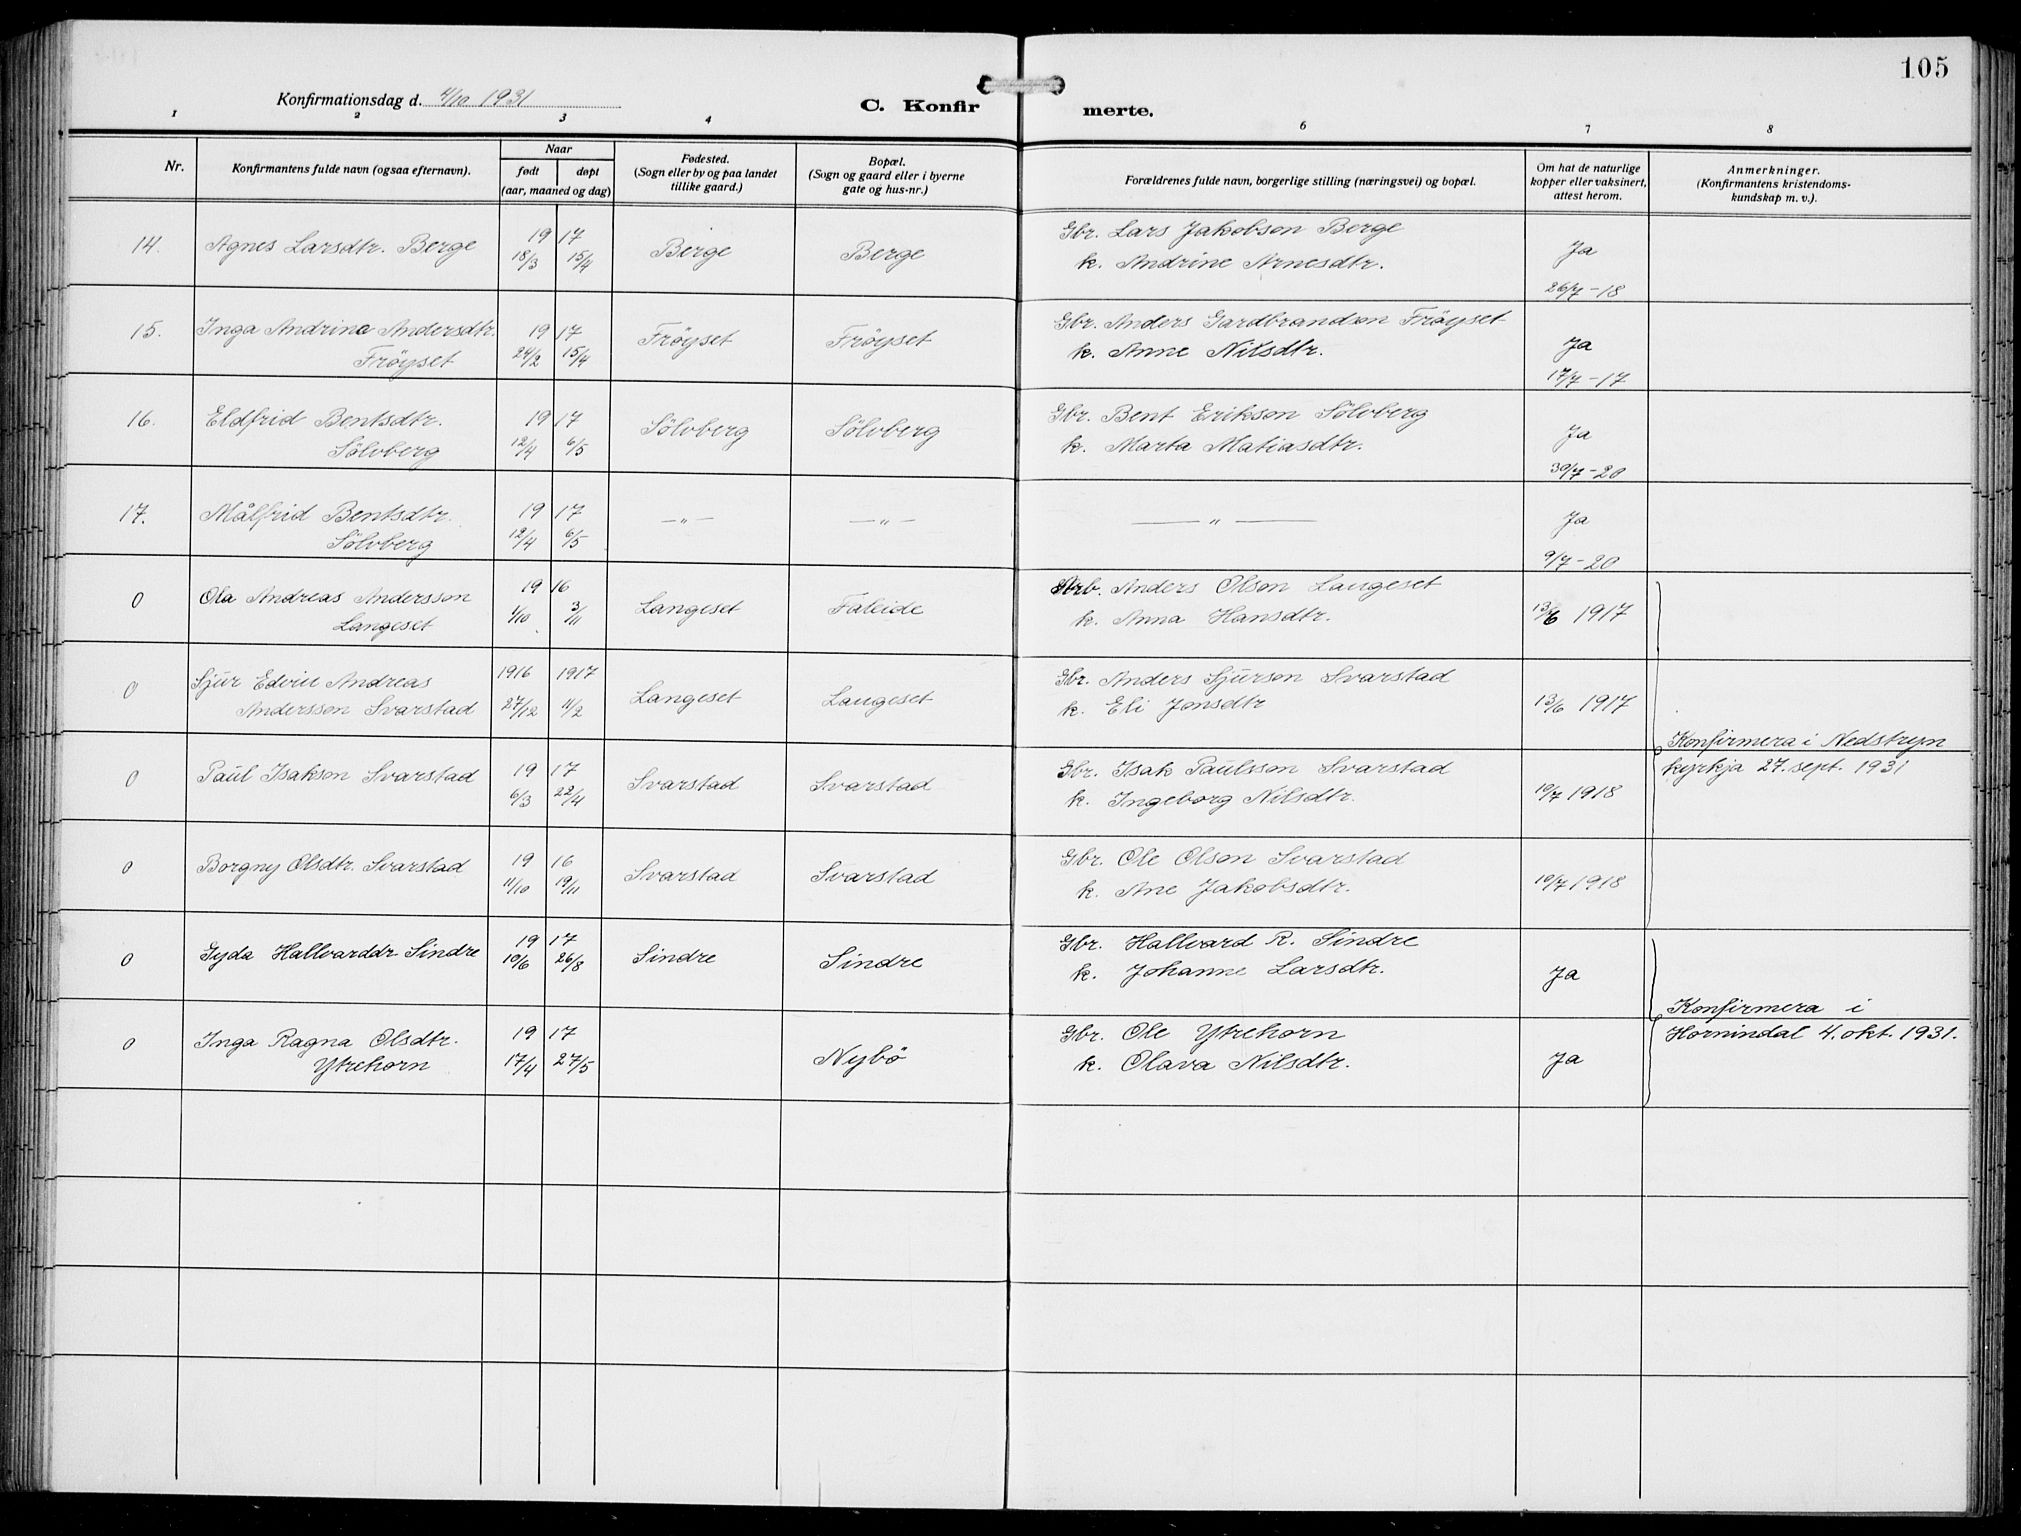 105
Konfirmationsdag d. 4/10 1931
C. Konfir merte.
1 2 3 4 6 7 8
Nr.
Konfirmantens fulde navn (ogsaa efternavn).
Naar
født døpt
(aar, maaned og dag)
Fødested.
(Sogn eller by og paa landet
tillike gaard.)
Bopæl.
(Sogn og gaard eller i byerne
gate og hus-nr.)
Forældrenes fulde navn, borgerlige stilling (næringsvei) og bopæl.
Om hat de naturlige
kopper eller vaksinert,
attest herom.
Anmerkninger.
(Konfirmantens kristendoms-
kundskap m. v.).
14. Agnes Larsdtr. Berge 19 17 Berge Berge Gbr. Lars Jakobson Berge Ja
18/3 15/4 k. Andrine Arnesdtr. 26/7-18
15. Inga Andrina Andersdtr. 19 17 Fröyset Fröyset Gbr. Anders Gardbrandson Fröyset Ja
Fröyset 24/2 15/4 k. Anne Nilsdtr. 17/7-17
16. Eldfrid Bentsdtr. 19 17 Sölvberg Sölvberg Gbr. Bent Erikson Sölvberg Ja
Sölvberg 12/4 6/5 k. Marta Matiasdtr. 30/7-20
17. Målfrid Bentsdtr. 19 17 —"— —"— —"— Ja
Sölvberg 12/4 6/5 9/7-20
0 Ola Andreas Andersson 19 16 Langeset Faleide Arb. Anders Olson Langeset 13/6 1917
Langeset 1/10 3/11 k. Anna Hansdtr.
0 Sjur Edvin Andreas 1916 1917 Langeset Langeset Gbr. Anders Sjurson Svarstad 13/6 1917
Andersson Svarstad 27/12 11/2 k. Eli Jonsdtr
Konfirmera i Nedstryn
kyrkja 27. sept. 1931
0 Paul Isakson Svarstad 19 17 Svarstad Svarstad Gbr. Isak Paulsson Svarstad 10/7 1918
6/3 22/4 k. Ingeborg Nilsdtr.
0 Borgny Olsdtr. Svarstad 19 16 Svarstad Svarstad Gbr. Ole Olson Svarstad 10/7 1918
11/10 19/11 k. Ane Jakobsdtr.
0 Gyda Hallvarddr Sindre 19 17 Sindre Sindre Gbr. Hallvard R. Sindre Ja
10/6 26/8 k. Johanne Larsdtr.
Konfirmera i
Hornindal 4. okt. 1931.
0 Inga Ragna Olsdtr. 19 17 Nybö Gbr. Ole Ytrehorn Ja
Ytrehorn 17/4 27/5 k. Olava Nilsdtr.